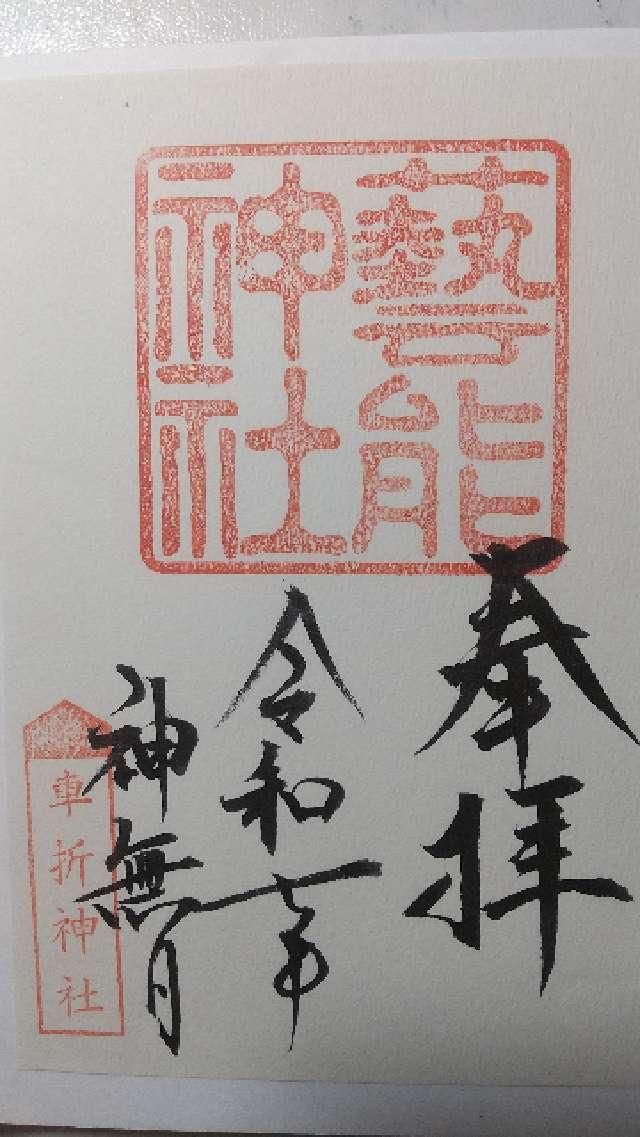 藝能
神社
奉拝
令和七年
神無月
車折神社